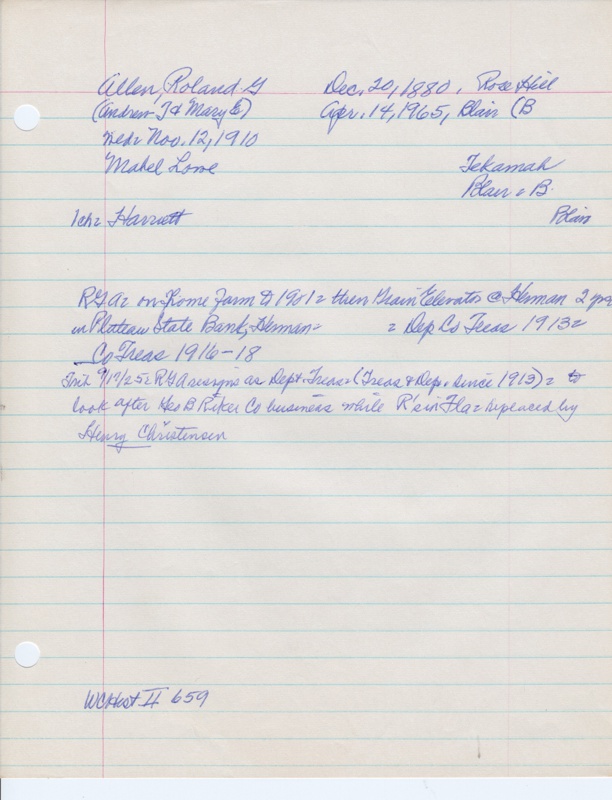 Allen, Roland G Dec. 20, 1880, Rose Hill
(Andrew T & Mary E) Apr. 14, 1965, Blair (B
Wed= Nov. 12, 1910
Mabel Lowe Tekamah
Blair = B.
1ch= Harriett Blair
RGA= on home farm to 1901= then Grain Elevator @ Herman 2 yrs
in Plateau State Bank, Herman= = Dep Co Treas 1913=
Co Treas 1916-18
9/17/25= RGA resigns as Dept. Treas= (Treas & Dep. since 1913)= to
look after Geo B Riker Co business while R's in Fla= replaced by
Henry Christensen
WCHist II 659